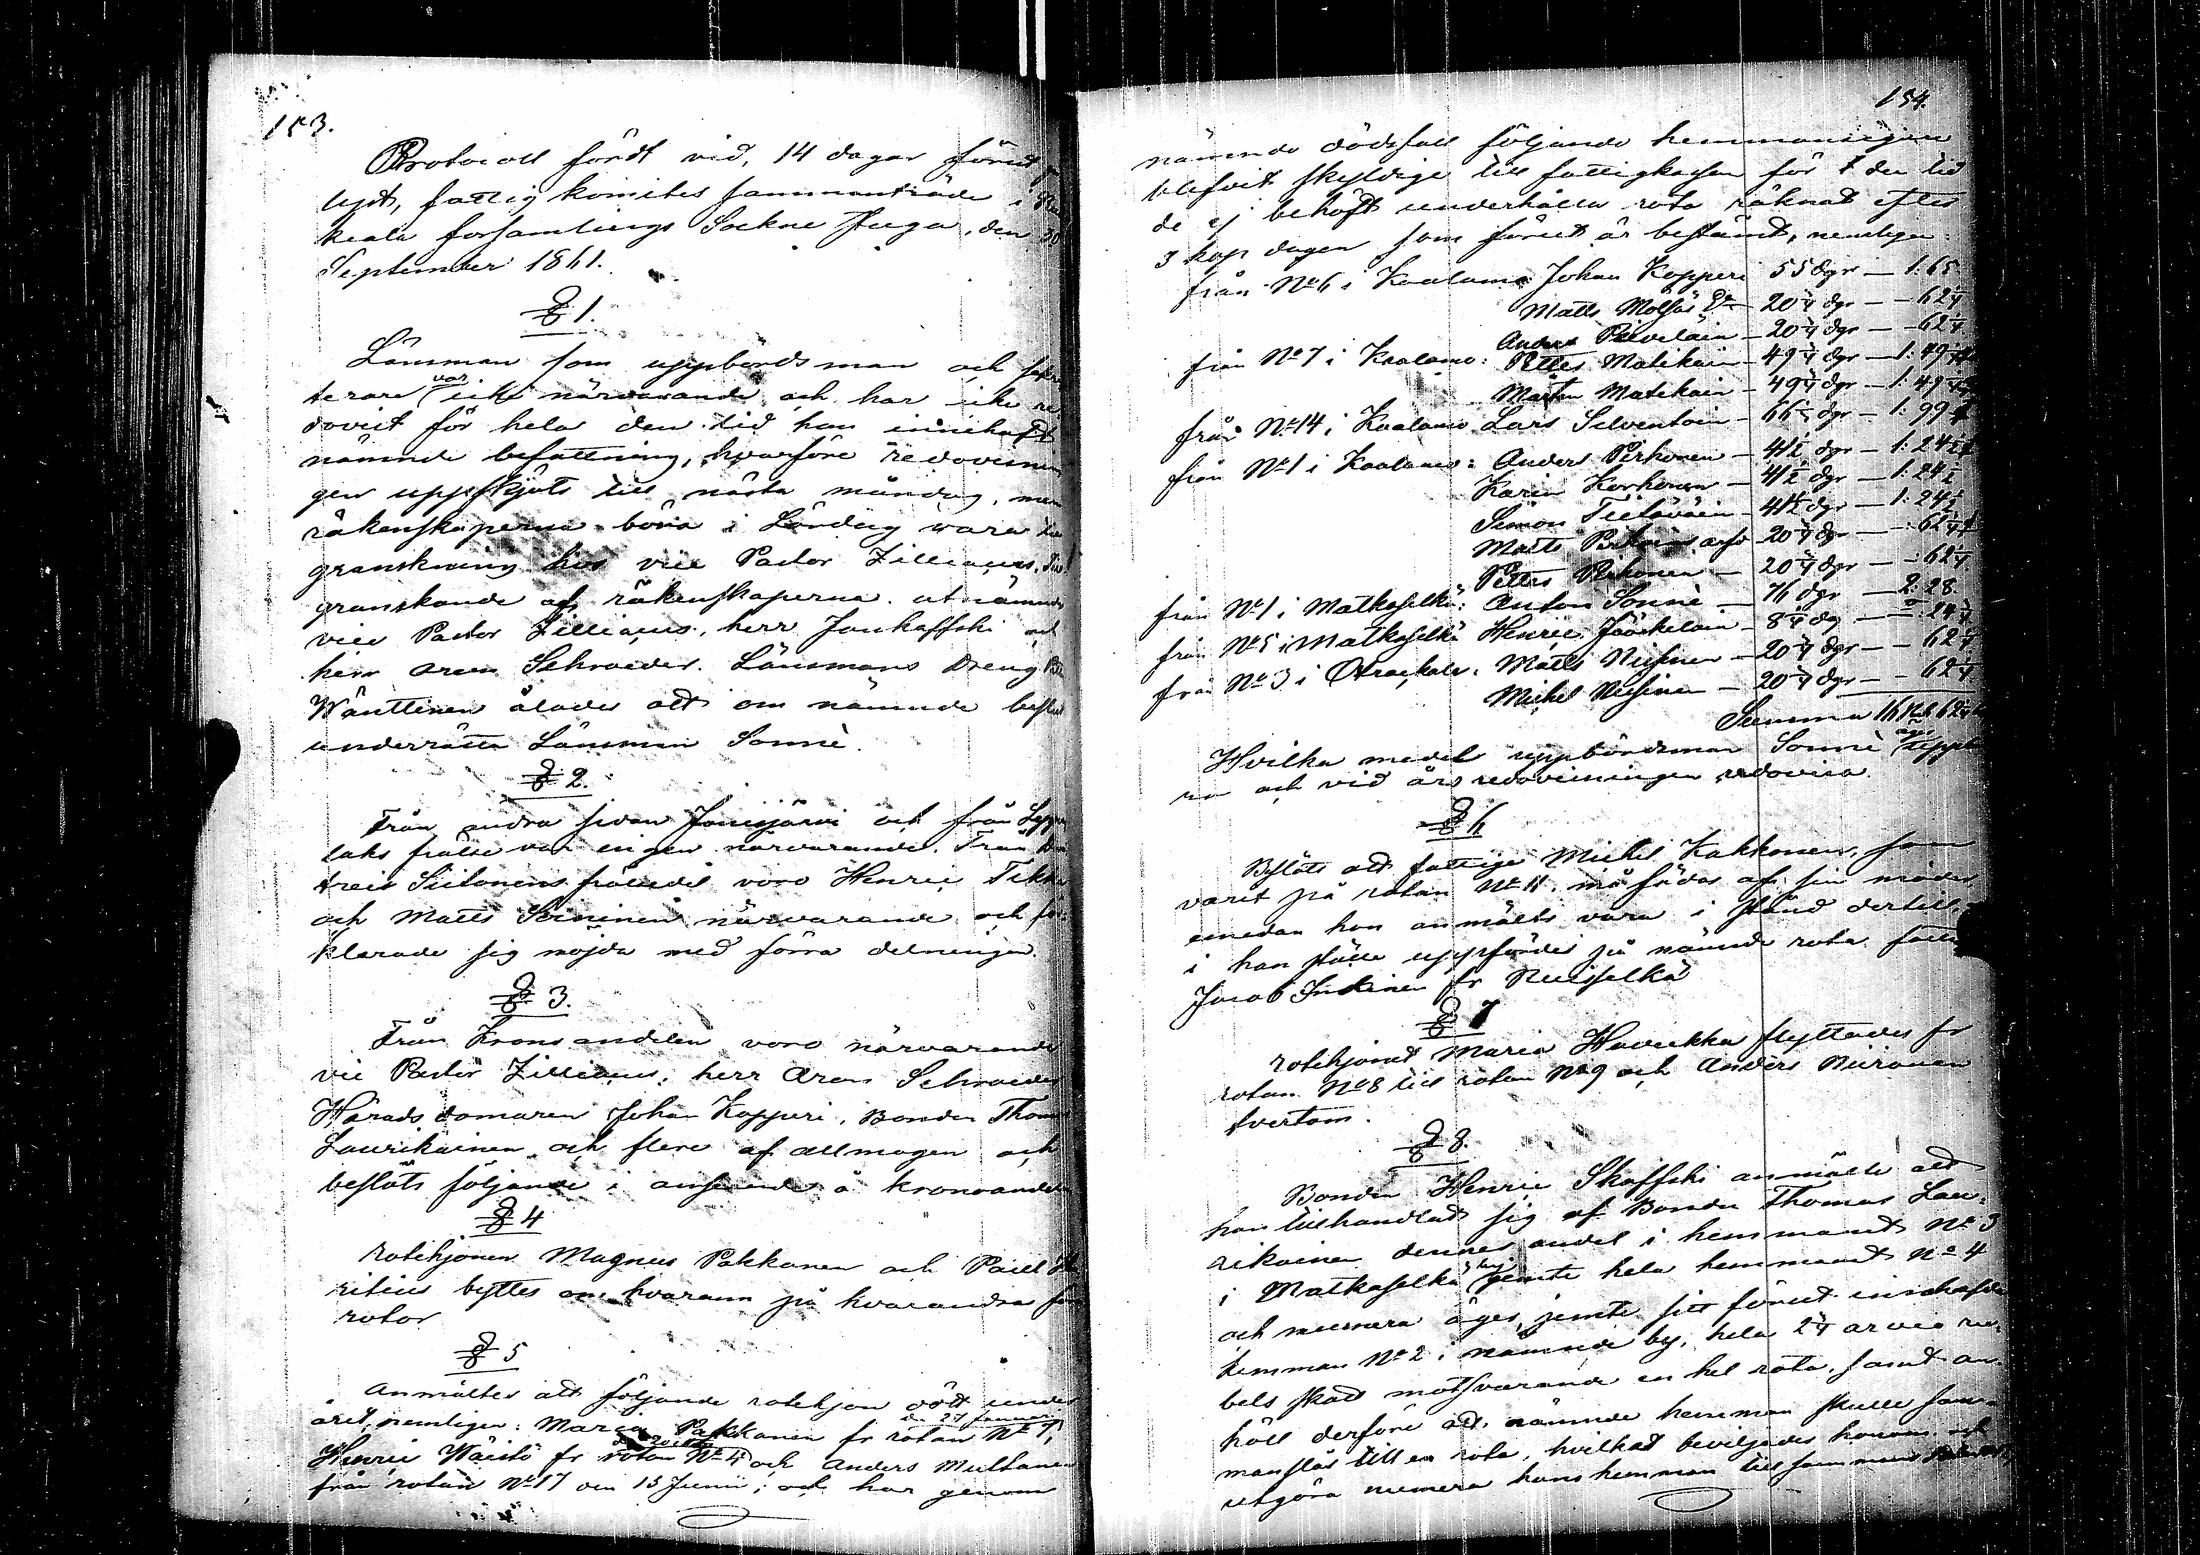 153.
Protocoll fördt vid, 14 dagar förut
lyst, fattig komites sammanträde i
keala församlings Sockne stuga, den 30
September 1861.
§ 1.
Länsman som uppbördsman och
terare var icke närvarande och har icke re
doverit för hela den tid han innehaft
nämnde befattning, hvarföre redovisnin
gen uppskjöts till nästa måndag, men
räkenskaperna böra i Lördag wara
granskning hos vice Pastor Zilliacus,
granskande af räkenskaperna utnämnde
vice Pastor Zilliacus, herr Jonkaffski och
herr Aron Schroeder. Länsmans Dreng
Wänttinen ålades att om nämnde beslut
underrätta Länsman Sonnè.
§ 2.
Från andra sidan Jänisjärvi och från
laks frälse var ingen närvarande. Från
treis Siitonens frälsedel voro Henric
och Matts Seininen närvarande och för-
klarade sig nöjda med förra delningen.
§ 3.
Från Krono andelen voro närvarande
vice Pastor Zilliacus, herr Aron Schroeder
Härads domaren Johan Kopperi, Bonden Thomas
Laurikainen och flere af allmogen och
beslöts följande i anseende å krono andelen
§ 4
Rotehjonen Magnus Pakkanen och Påhl
ritius byttes om hvarann på hvarandras
rotor
§ 5
Anmältes att följande rotehjon dött under
året, nemligen: Maria Pakkanen fr rotan No 7, den 27 Januari
Henric Wäistö fr rotan No 4 och Anders Multanen
från rotan No 17 den 15 Junii; och har genom
154.
nämnde dödsfall följande hemmansegare
blefvit skyldige till fattigkassan för den tid
de ej behöft underhålla rota räknat efter
3 kop dagen som förut är bestämdt, nemligen:
från No 6 i Kaalamo Johan Kopperi 55 dgr — 1:65.
Matts Mölsäs — 20¾ dgr — 62¼
Anders Päiveläin — 20¾ dgr — 62¼
från No 7 i Kaalamo: Petter Matikain — 49¾ dgr — 1:49¼
Martin Matikain — 49¾ dgr — 1:49¼
från No 14 i Kaalamo Lars Silventoin — 66½ dgr — 1:99½
från No 1 i Kaalamo: Anders Pirhonen — 41½ dgr — 1:24½
Karin Korhonen — 41½ dgr — 1:24½
Simon Tietäväin — 41½ dgr — 1:24½
Matts Pirhoins arf — 20¾ dgr — 62¼
Petter Pirhonen — 20¾ dgr — 62¼
från No 1 i Matkaselkä: Anton Sonnè — 76 dgr — 2:28.
från No 5 i Matkaselkä Henric Jääskelain — 8¼ dg — 24¾
från No 3 i Otrakkala: Matts Nuisinen — 20¾ dgr — 62¼
Michel Nuisinen — 20¾ dgr — 62¼
Summa 16 Rub 62
Hvilka medel uppbördsman Sonnè
ra och vid års redovisningen redovisa.
§ 6
Beslöts att fattige Michel Kakkonen, som
varit på rotan No 11 må födas af sin moder
emedan hon anmälts vara i stånd dertill,
i hans ställe uppfördes på nämnde rota
Jacob Inkinen fr Ruisselkä
§ 7
Rotehjonet Maria Havukka flyttades fr
rotan No 8 till rotan No 9 och Anders Piironen
tvertom.
§ 8.
Bonden Henric Skaffski anmälte att
han tillhandlat sig af Bonden Thomas Lau-
rikainen dennes andel i hemmanet No 3
i Matkaselkä by jemte hela hemmanet No 4
och numera äger, jemte sitt förut innehafde
hemman No 2 i nämnde by, hela 2¼ arvio ru-
bels skatt motsvarande en hel rota, samt an-
höll derföre att nämnde hemman skulle sam-
manslås till en rota, hvilket beviljades honom och
utgöra numera hans hemman tillsammans